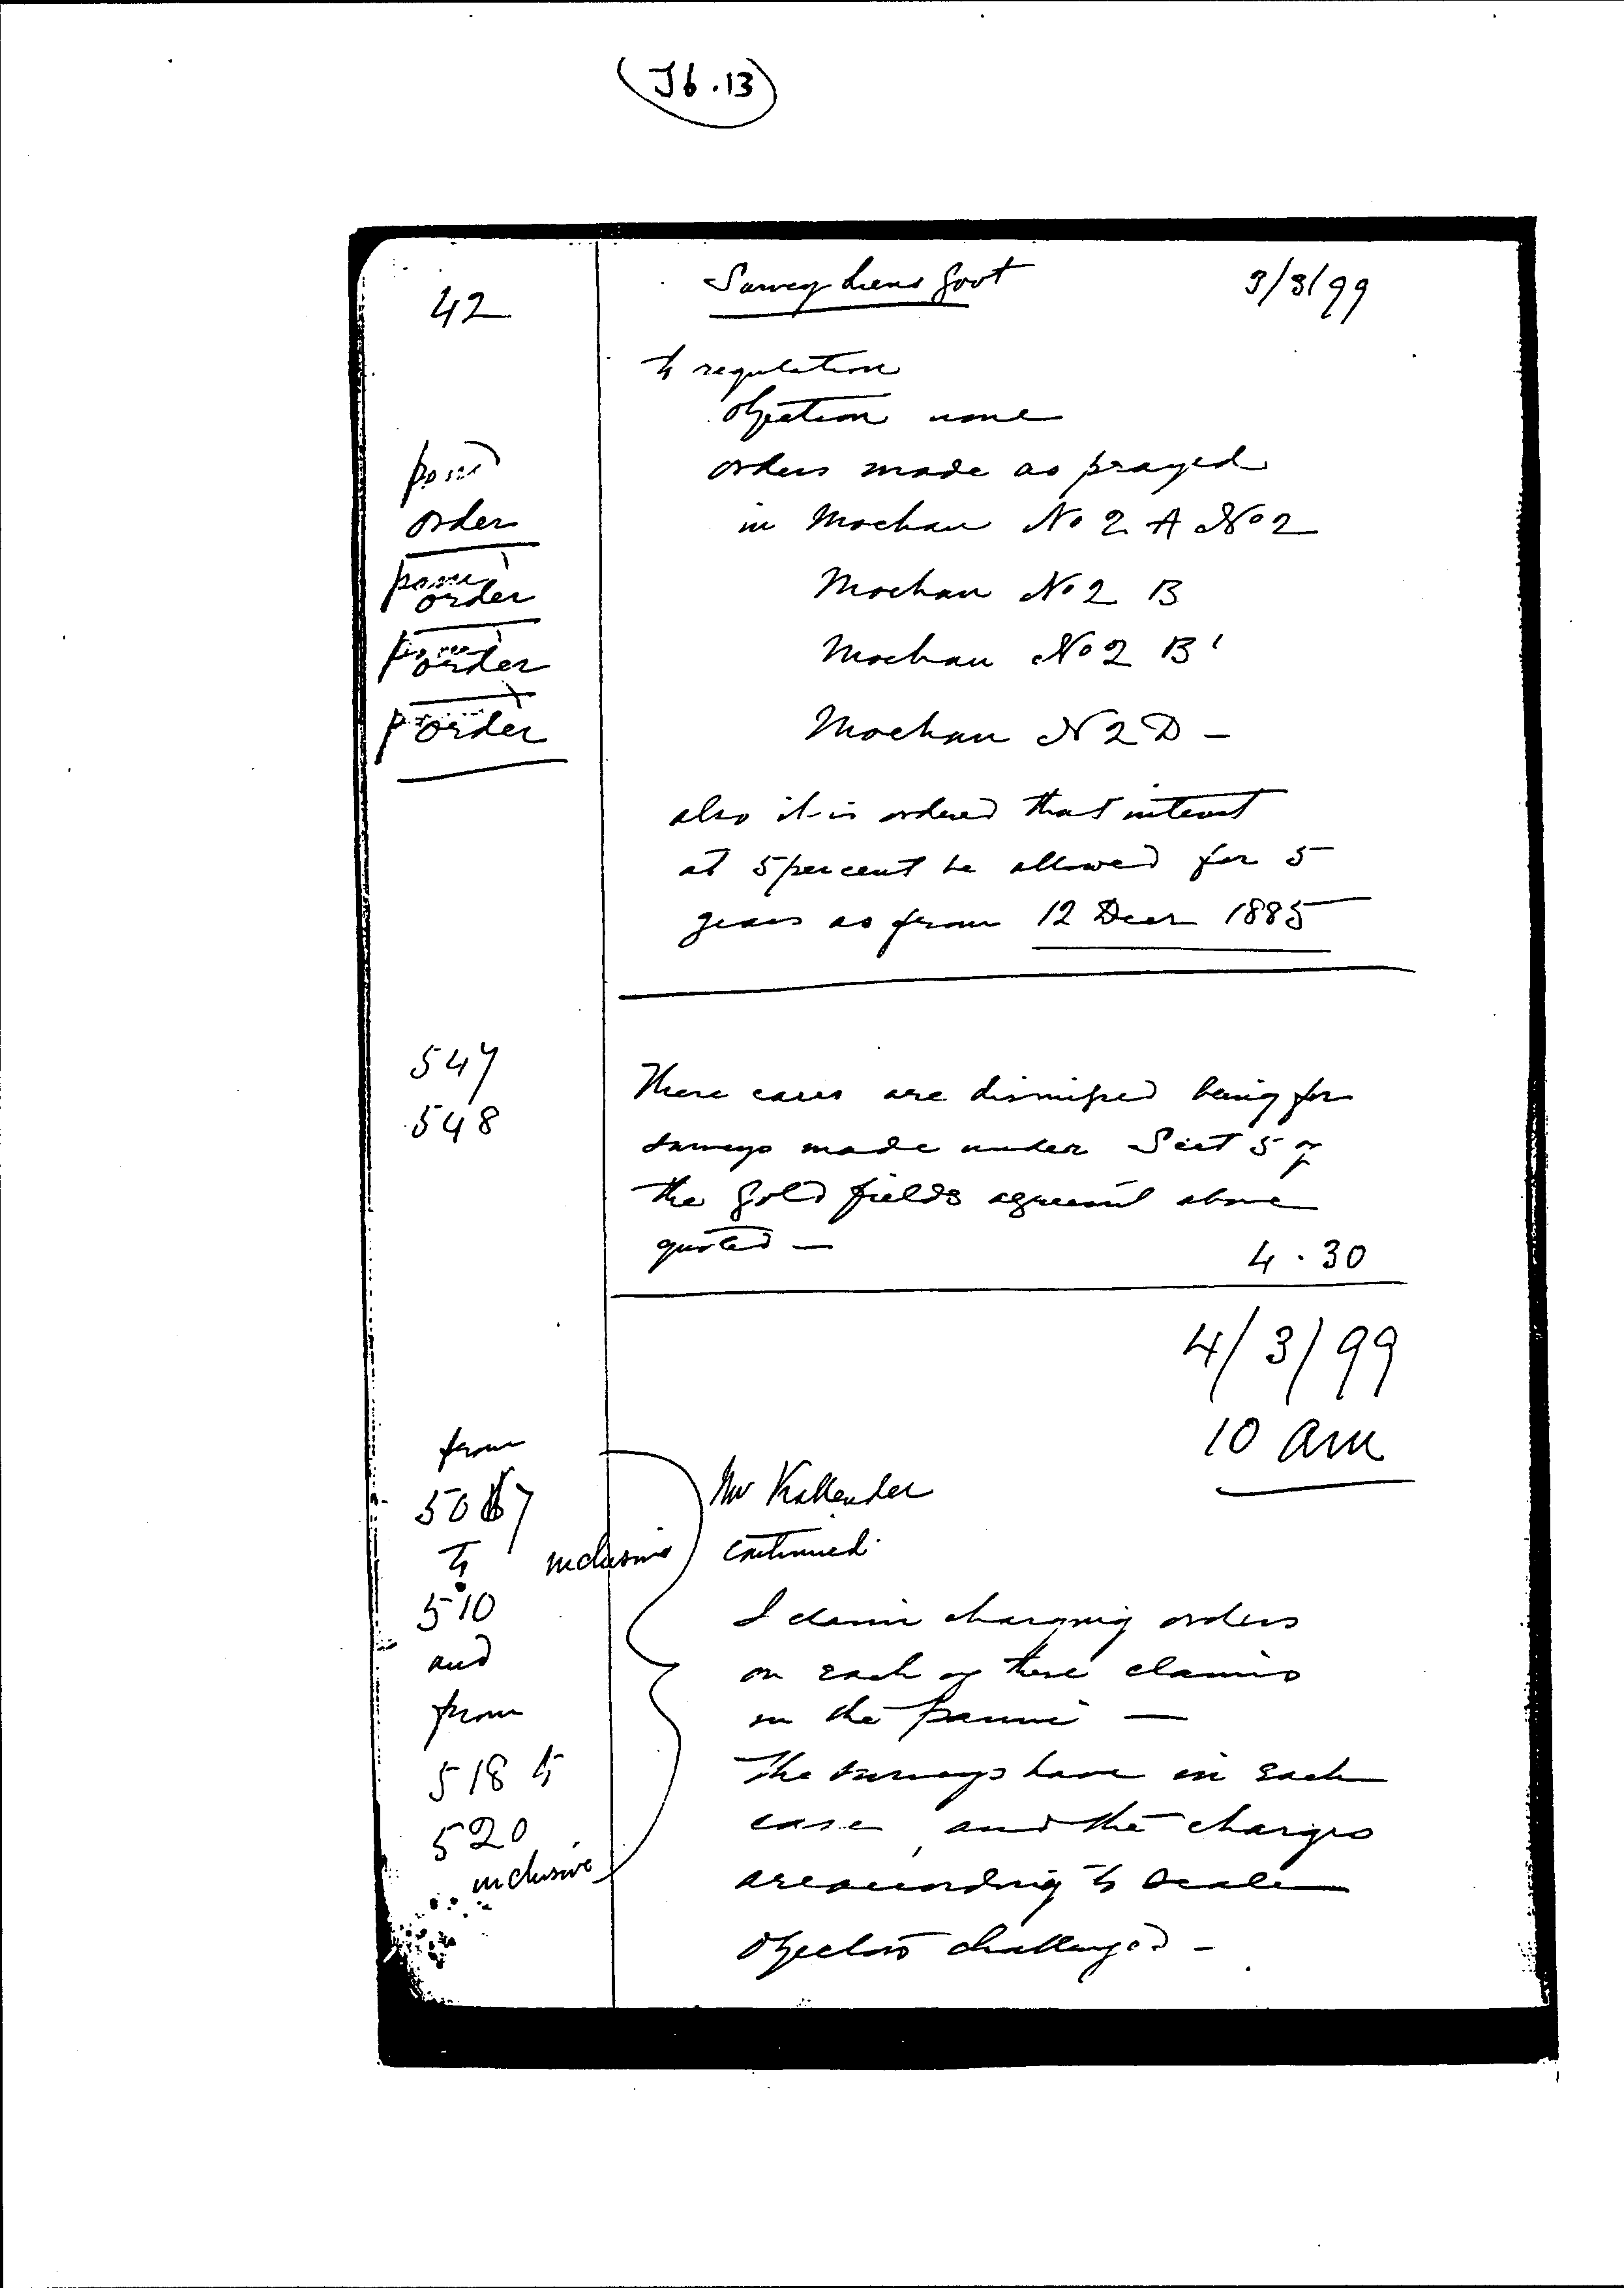 J6.13
42
Survey Liens Govt 3/3/99
to regulation
Objection none
orders made as prayed
order
in Moehau No 2 A No 2
order
Moehau No 2 B
order
Moehau No 2 B1
order
Moehau N 2 D -
also it is ordered that interest
at 5 percent be allowed for 5
years as from 12 Decr 1885
547
548
These cases are dismissed being for
surveys made under Sect 5 of
the Gold fields agreement above
quoted -
4.30
4/3/99
10 am
from
507
to inclusive
510
and
from
518 to
520
inclusive
Mr Kallender
continued
I claim charging orders
on each of these claims
in the panui -
The surveys have in each
case, and the charges
are according to scale
Objectors challenged -